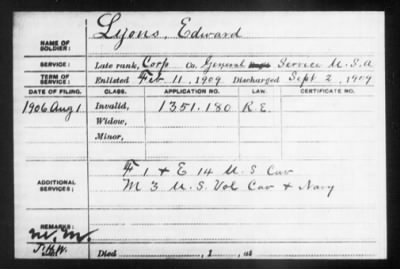 Lyons, Edward
NAME OF SOLDIER:
SERVICE: Late rank, Corp Co. General Service U.S.A
TERM OF SERVICE: Enlisted Feb 11, 1909 Discharged Sept 2, 1909
DATE OF FILING. CLASS. APPLICATION NO. LAW. CERTIFICATE NO.
1906 Aug 1 Invalid, 1351.180 R.E.
Widow,
Minor,
F 1 & E 14 U.S Cav
ADDITIONAL SERVICES: M 3 U.S. Vol Cav & Navy
REMARKS:
Died , 1 , at